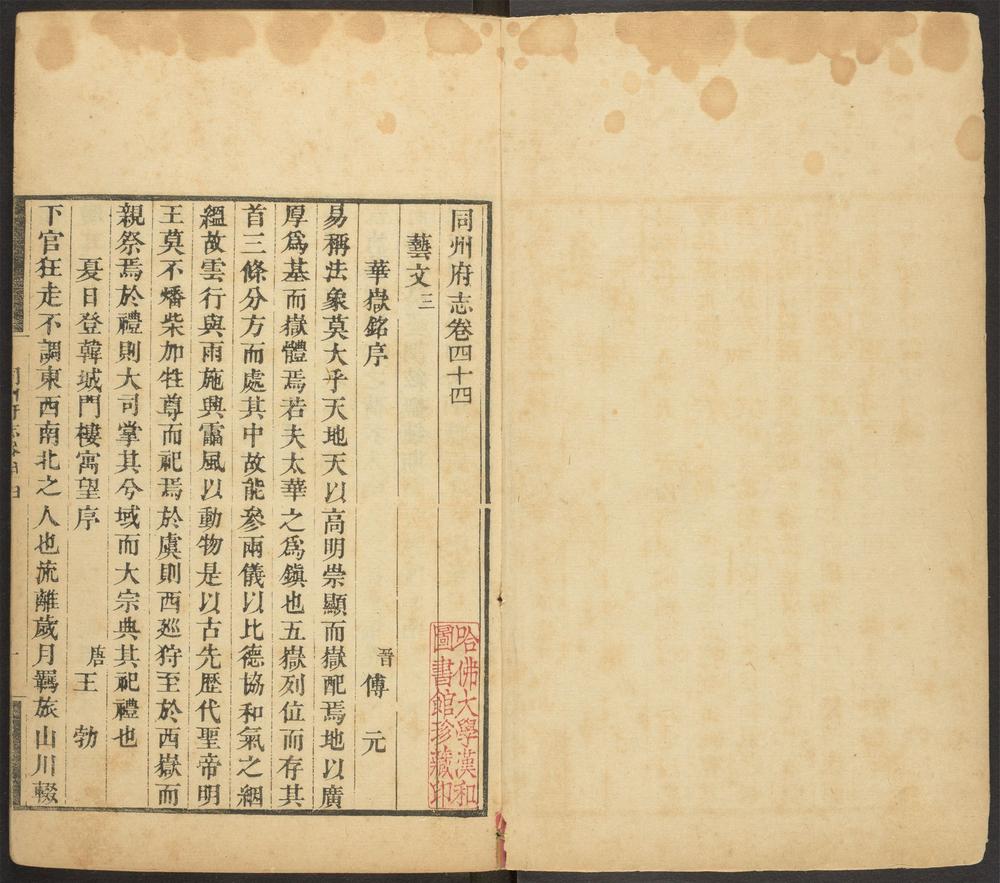 同州府志卷四十四
藝文三
華嶽銘序 晉 傅 元
易稱法象莫大乎天地天以高明崇顯而嶽配焉地以廣
厚爲基而嶽體焉若夫太華之爲鎭也五嶽列位而存其
首三條分方而處其中故能參兩儀以比德協和氣之絪
縕故雲行與雨施興雷風以動物是以古先歷代聖帝明
王莫不燔柴加牲尊而祀焉於虞則西廵狩至於西嶽而
親祭焉於禮則大司掌其兮域而大宗典其祀禮也
夏日登韓城門樓寓望序 唐 王 勃
下官狂走不調東西南北之人也流離歲月羈旅山川輟
哈佛大學漢和
圖書館珍藏印